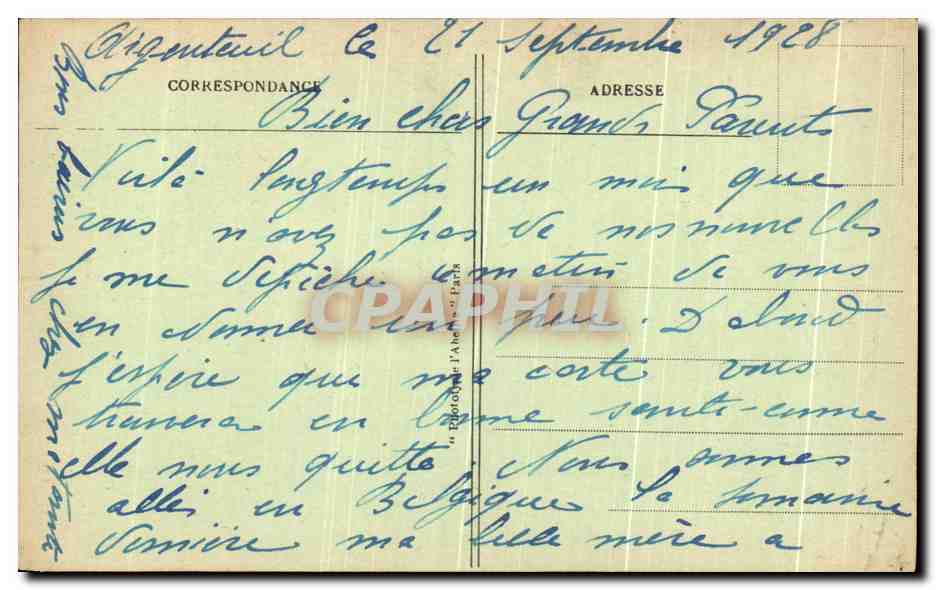 Argenteuil le 21 septembre 1928
CORRESPONDANCE
ADRESSE
Bien chers Grands Parents
Voilà longtemps un mois que
vous n'avez pas de nos nouvelles
je me dépêche ce matin de vous
en donner un peu. D'abord
j'espère que ma carte vous
trouvera en bonne santé comme
elle nous quitte. Nous sommes
allés en Belgique la semaine
dernière ma belle mère a
Bons baisers
"Phototypie l'Abeille" Paris
CPAPHIL